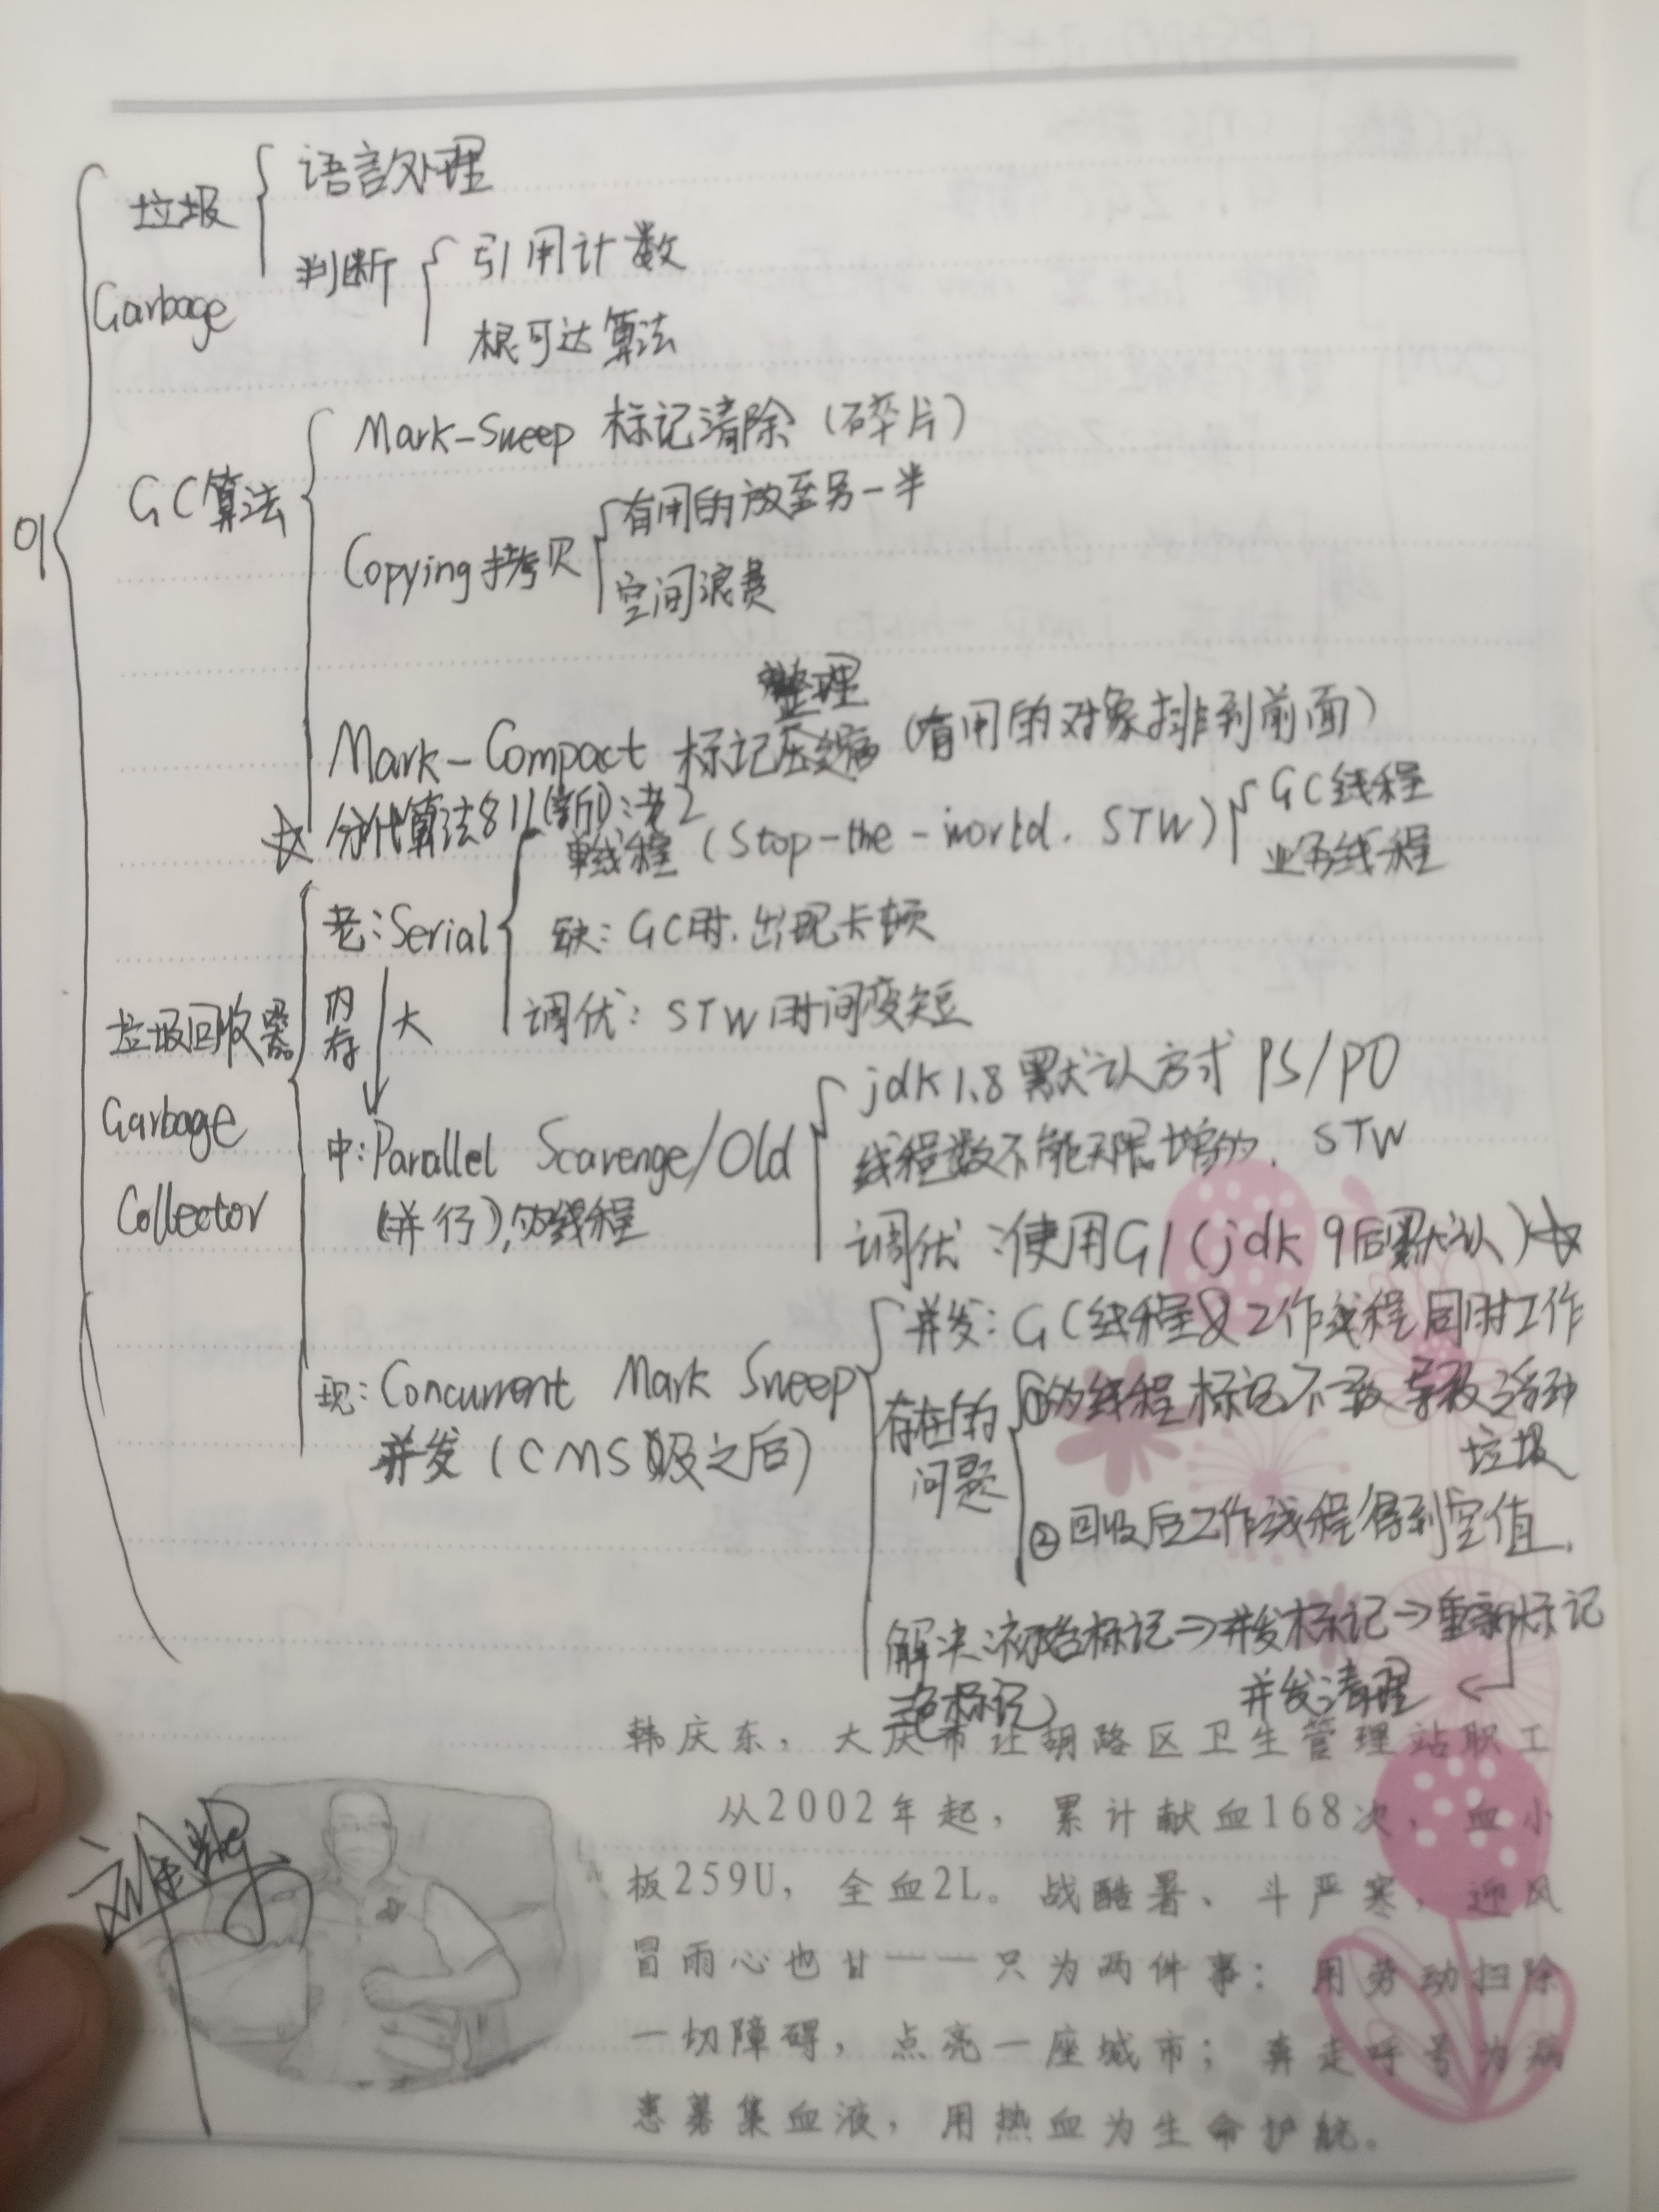 01
垃圾
Garbage
语言处理
判断
引用计数
根可达算法
GC算法
Mark-Sweep 标记清除（碎片）
Copying 拷贝
有用的放至另一半
空间浪费
整理
Mark-Compact 标记压缩（有用的对象排到前面）
☆ 分代算法811(新):老2
垃圾回收器
Garbage
Collector
老:Serial
单线程（Stop-the-world. STW）
GC线程
业务线程
缺: GC时,出现卡顿
调优: STW时间变短
内存
大
中:Parallel Scavenge/Old
(并行),多线程
jdk1.8默认方式 PS/PO
线程数不能无限增多. STW
调优:使用G1(jdk 9后默认)☆
现: Concurrent Mark Sweep
并发（CMS及之后）
并发: GC线程&工作线程同时工作
存在的
问题
①多线程标记不一致导致浮动
垃圾
②回收后工作线程得到空值.
解决:初始标记→并发标记→重新标记
三色标记
并发清理
韩庆东，大庆市让胡路区卫生管理站职工
从2002年起，累计献血168次，血小
板259U，全血2L。战酷暑、斗严寒，迎风
冒雨心也甘——只为两件事：用劳动扫除
一切障碍，点亮一座城市；奔走呼号为病
患募集血液，用热血为生命护航。